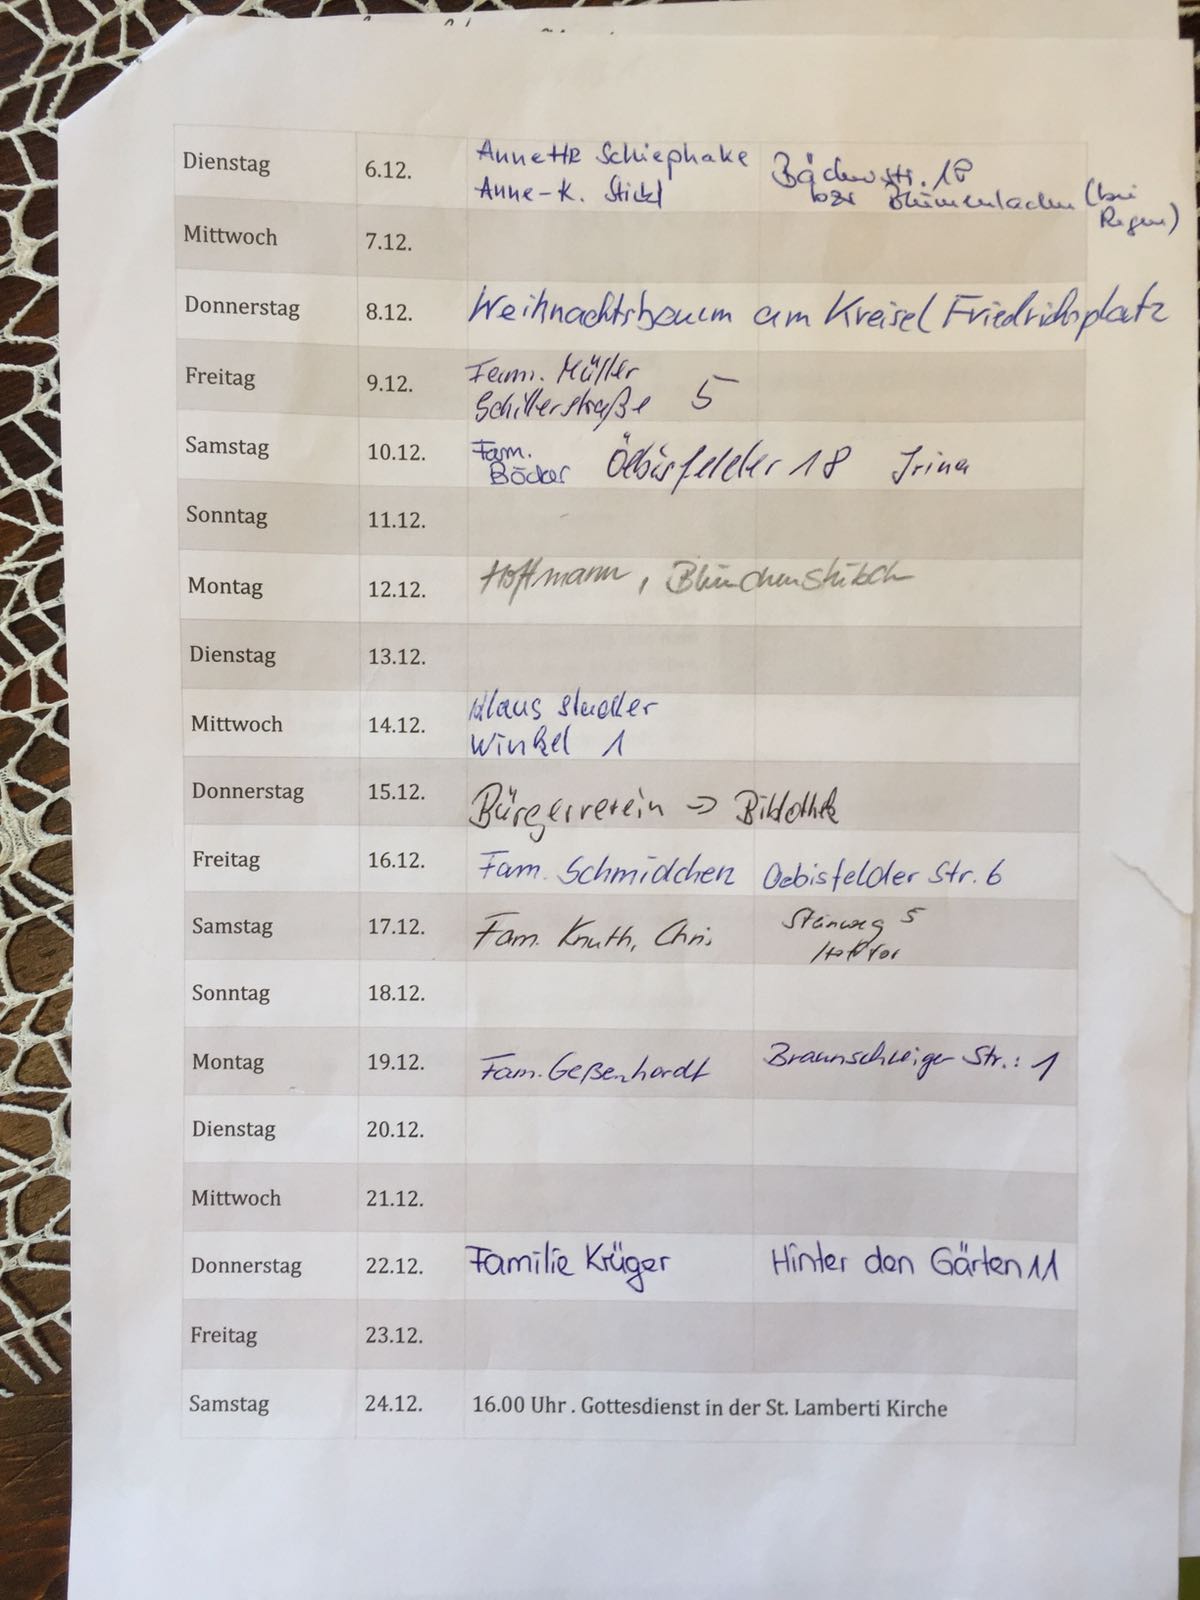 Dienstag 6.12. Annette Schiephake Bäckerstr. 18
Anne-K. Stickl bzw Blumenladen (bei Regen)
Mittwoch 7.12.
Donnerstag 8.12. Weihnachtsbaum am Kreisel Friedrichsplatz
Freitag 9.12. Fam. Müller
Schillerstraße 5
Samstag 10.12. Fam. Böcker Öebisfelder 18 Irina
Sonntag 11.12.
Montag 12.12. Hoffmann,
Dienstag 13.12.
Mittwoch 14.12. Klaus
Winkel 1
Donnerstag 15.12. Bürgerverein → Bibliothek
Freitag 16.12. Fam. Schmidchen Oebisfelder Str. 6
Samstag 17.12. Fam. Knuth, Chris Steinweg 5
Sonntag 18.12.
Montag 19.12. Fam. Geßenhardt Braunschweiger Str.: 1
Dienstag 20.12.
Mittwoch 21.12.
Donnerstag 22.12. Familie Krüger Hinter den Gärten 11
Freitag 23.12.
Samstag 24.12. 16.00 Uhr . Gottesdienst in der St. Lamberti Kirche